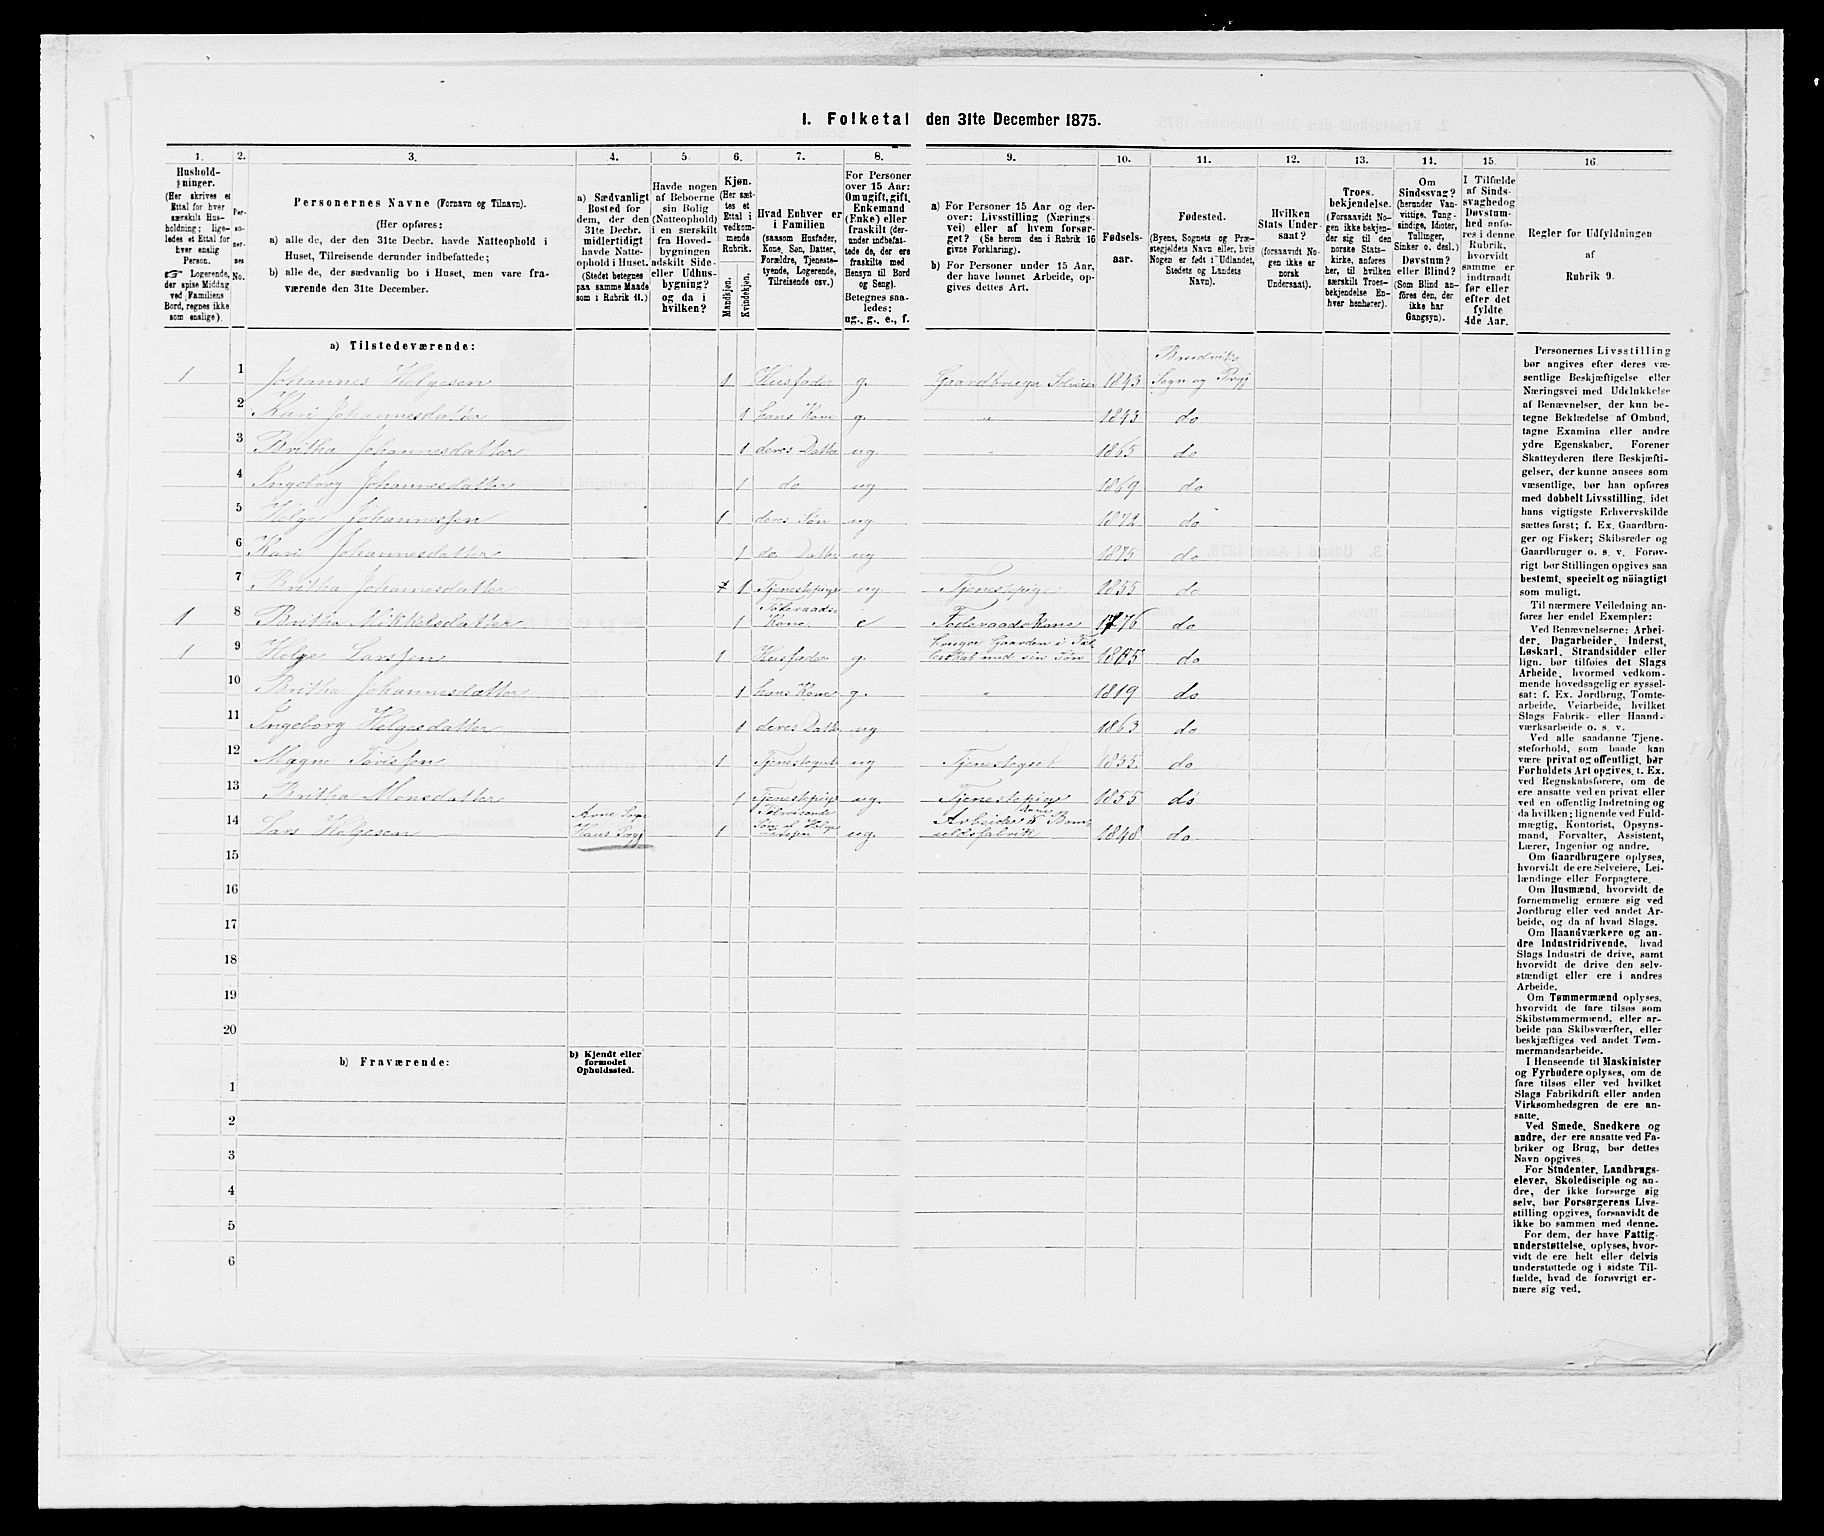 1. Folketal den 31te December 1875.
1. 2. 3. 4. 5. 6. 7. 8. 9. 10. 11. 12. 13. 14. 15. 16
Hushold-
ninger.
(Her skrives et
Ettal for hver
særskilt Hus-
holdning; lige-
ledes et Ettal for
hver enslig
Person.
☞ Logerende,
der spise Middag
ved Familiens
Bord, regnes ikke
som enslige).
Per-
so-
ner-
nes
No.
Personernes Navne (Fornavn og Tilnavn).
(Her opføres:
a) alle de, der den 31te Decbr. havde Natteophold i
Huset, Tilreisende derunder indbefattede;
b) alle de, der sædvanlig bo i Huset, men vare fra-
værende den 31te December.
a) Sædvanligt
Bosted for
dem, der den
31te Decbr.
midlertidigt
havde Natte-
ophold i Huset.
(Stedet betegnes
paa samme Maade
som i Rubrik 11.)
Havde nogen
af Beboerne
sin Bolig
(Natteophold)
i en særskilt
fra Hoved-
bygningen
adskilt Side-
eller Udhus-
bygning?
og da i
hvilken?
Kjøn.
(Her sæt-
tes et
Ettal i
vedkom-
mende
Rubrik.
Mandkjøn.
Kvindekjøn.
Hvad Enhver er
i Familien
(saasom Husfader,
Kone, Søn, Datter,
Forældre, Tjeneste-
tyende, Logerende,
Tilreisende osv.)
For Personer
over 15 Aar:
Om ugift, gift,
Enkemand
(Enke) eller
fraskilt (der-
under indbefat-
tede de, der ere
fraskilte med
Hensyn til Bord
og Seng).
Betegnes saa-
ledes:
ug., g., e., f.
a) For Personer 15 Aar og der-
over: Livsstilling (Nærings-
vei) eller af hvem forsør-
get? (Se herom den i Rubrik 16
givne Forklaring).
b) For Personer under 15 Aar,
der have lønnet Arbeide, op-
gives dettes Art.
Fødsels-
aar.
Fødested.
(Byens, Sognets og Præ-
stegjeldets Navn eller, hvis
Nogen er født i Udlandet,
Stedets og Landets
Navn).
Hvilken
Stats Under-
saat?
(forsaavidt No-
gen ikke er
norsk
Undersaat).
Troes-
bekjendelse.
(Forsaavidt No-
gen ikke bekjen-
der sig til den
norske Stats-
kirke, anføres
her, til hvilken
særskilt Troes-
bekjendelse En-
hver henhører).
Om
Sindssvag?
(herunder Van-
vittige, Tung-
sindige, Idioter,
Tullinger,
Sinker o. desl.)
Døvstum?
eller Blind?
(Som Blind an-
føres den, der
ikke har
Gangsyn).
I Tilfælde
af Sinds-
svaghed og
Døvstum-
hed anfø-
res i denne
Rubrik,
hvorvidt
samme er
indtraadt
før eller
efter det
fyldte
4de Aar.
Regler for Udfyldningen
af
Rubrik 9.
a) Tilstedeværende:
1 1 Johannes Helgesen 1 Husfader g. Gaardbruger Selveier 1843 Brudviks Sogn og Prgj
2 Kari Johannesdatter 1 hans Kone g. " 1843 do
3 Britha Johannesdatter 1 deres Datter ug. " 1865 do
4 Ingeborg Johannesdatter 1 do ug 1869 do
5 Helge Johannessen 1 deres Søn ug 1872 do
6 Kari Johannesdatter 1 do Datter ug 1875 do
7 Britha Johannesdatter 1 Tjenestepige ug. Tjenestepige 1855 do
1 8 Britha Mikkelsdatter 1 Føderaads- Kone e Føderaads Kone 1776 do
1 9 Helge Larssen 1 Husfader g. bruger Gaarden i Fæl- lesskab med sin Søn 1815 do
10 Britha Johannesdatter 1 hans Kone g. " 1819 do
11 Ingeborg Helgesdatter 1 deres Datter ug 1863 do
12 Magne 1 Tjenestegut ug Tjenestegut 1855. do
13 Britha Monsdatter 1 Tjenestepige ug. Tjenestepige 1855 do
14 Lars Helgesen Arne Sogn Hans Prgj 1 Søn af Helge Larssen ug. Arbeider Bom- uldsfabrik 1848 do
15
16
17
18
19
20
b) Fraværende:
b) Kjendt eller
formodet
Opholdssted.
1
2
3
4
5
6
Personernes Livsstilling
bør angives efter deres væ-
sentlige Beskjæftigelse eller
Næringsvei med Udelukkelse
af Benævnelser, der kun be-
tegne Beklædelse af Ombud,
tagne Examina eller andre
ydre Egenskaber. Forener
Skatteyderen flere Beskjæfti-
gelser, der kunne ansees som
væsentlige, bør han opføres
med dobbelt Livsstilling, idet
hans vigtigste Erhvervskilde
sættes først; f. Ex. Gaardbru-
ger og Fisker; Skibsreder og
Gaardbruger o. s. v. Forøv-
rigt bør Stillingen opgives saa
bestemt, specielt og nöiagtigt
som muligt.
Til nærmere Veiledning an-
føres her endel Exempler:
Ved Benævnelserne: Arbei-
der, Dagarbeider, Inderst,
Løskarl, Strandsidder eller
lign. bør tilføies det Slags
Arbeide, hvormed vedkom-
mende hovedsagelig er syssel-
sat; f. Ex. Jordbrug, Tomte-
arbeide, Veiarbeide, hvilket
Slags Fabrik- eller Haand-
værksarbeide o. s. v.
Ved alle saadanne Tjene-
steforhold, som baade kan
være privat og offentligt, bør
Forholdets Art opgives, t. Ex.
ved Regnskabsførere, om de
ere ansatte ved en privat eller
ved en offentlig Indretning og
da hvilken; lignende ved Fuld-
mægtig, Kontorist, Opsyns-
mand, Forvalter, Assistent,
Lærer, Ingeniør og andre.
Om Gaardbrugere oplyses,
hvorvidt de ere Selveiere, Lei-
lændinge eller Forpagtere.
Om Husmænd, hvorvidt de
fornemmelig ernære sig ved
Jordbrug eller ved andet Ar-
beide, og da af hvad Slags.
Om Haandværkere og an-
dre Industridrivende, hvad
Slags Industri de drive, samt
hvorvidt de drive den selv-
stændigt eller ere i andres
Arbeide.
Om Tømmermænd oplyses,
hvorvidt de fare tilsøs som
Skibstømmermænd, eller ar-
beide paa Skibsværfter, eller
beskjæftiges ved andet Tøm-
mermandsarbeide.
I Henseende til Maskinister
og Fyrbødere oplyses, om de
fare tilsøs eller ved hvilket
Slags Fabrikdrift eller anden
Virksomhedsgren de ere an-
satte.
Ved Smede, Snedkere og
andre, der ere ansatte ved Fa-
briker og Brug, bør dettes
Navn opgives.
For Studenter, Landbrugs-
elever, Skoledisciple og an-
dre, der ikke forsørge sig
selv, bør Forsørgerens Livs-
stilling opgives, forsaavidt de
ikke bo sammen med denne.
For dem, der have Fattig-
understøttelse, oplyses, hvor-
vidt de ere helt eller delvis
understøttede og i sidste Til-
fælde, hvad de forøvrigt er-
nære sig ved.